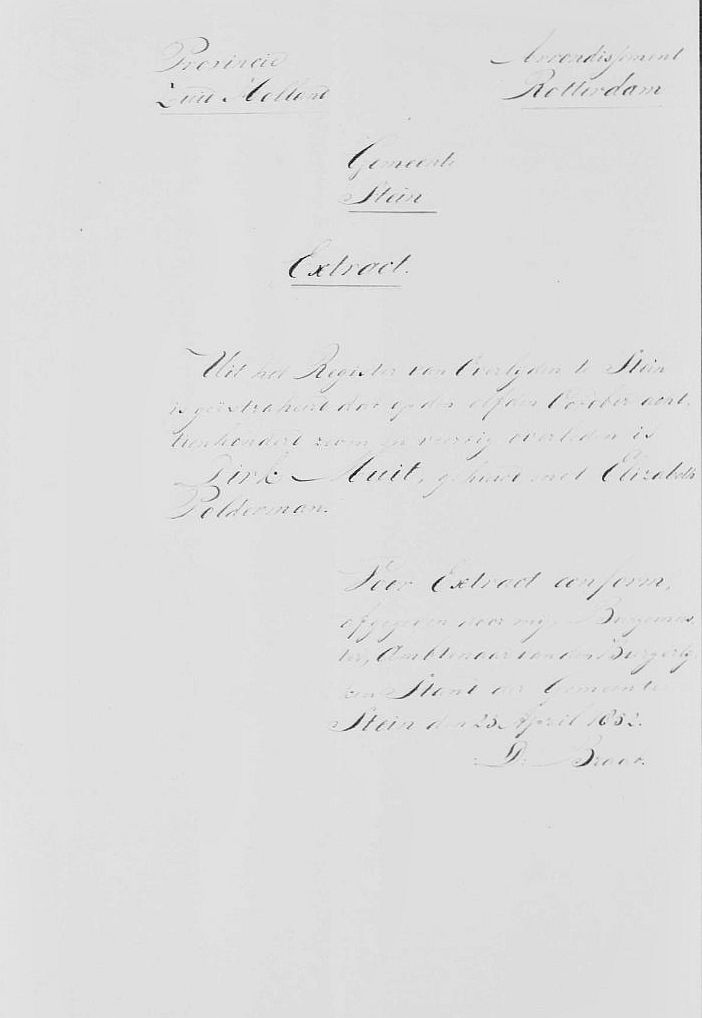 Provincie
Zuid Holland
Arrondissement
Rotterdam
Gemeente
Stein
Extract.
Uit het Register van Overlyden te Stein
is geëxtraheert dat op den elfden October acht-
tienhondert zeven en veertig overleden is
Dirk Muit, gehuwt met Elizabeth
Polderman.
Voor Extract conform,
afgegeven door mij, Burgemees-
ter, Ambtenaar van den Burgerly-
ken Stant der Gemeente
Stein den 23 April 1852.
D: